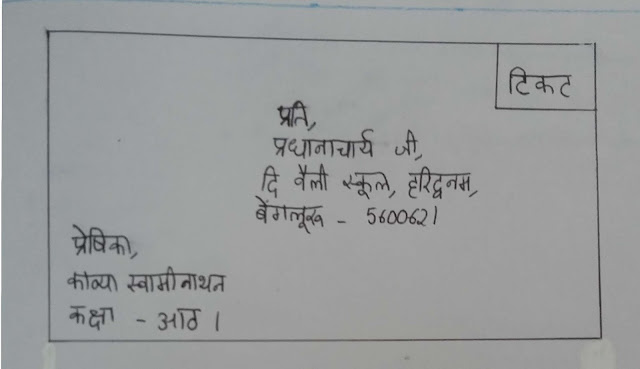 टिकट
प्रति,
प्रधानाचार्य जी,
दि वैली स्कूल, हरिद्वनम,
बेंगलूरू - 5600621
प्रेषिका,
काव्या स्वामीनाथन
कक्षा - आठ।